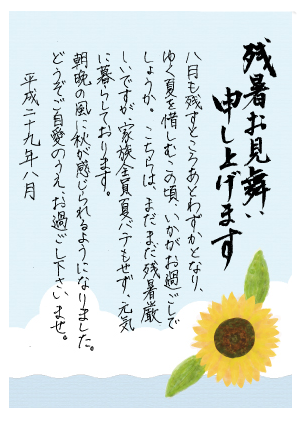 残暑お見舞い
申し上げます
八月も残すところあとわずかとなり、
ゆく夏を惜しむこの頃、いかがお過ごしで
しょうか。こちらは、まだまだ残暑厳
しいですが、家族全員夏バテもせず、元気
に暮らしております。
朝晩の風に秋が感じられるようになりました。
どうぞご自愛のうえ、お過ごし下さいませ。
平成二十九年八月